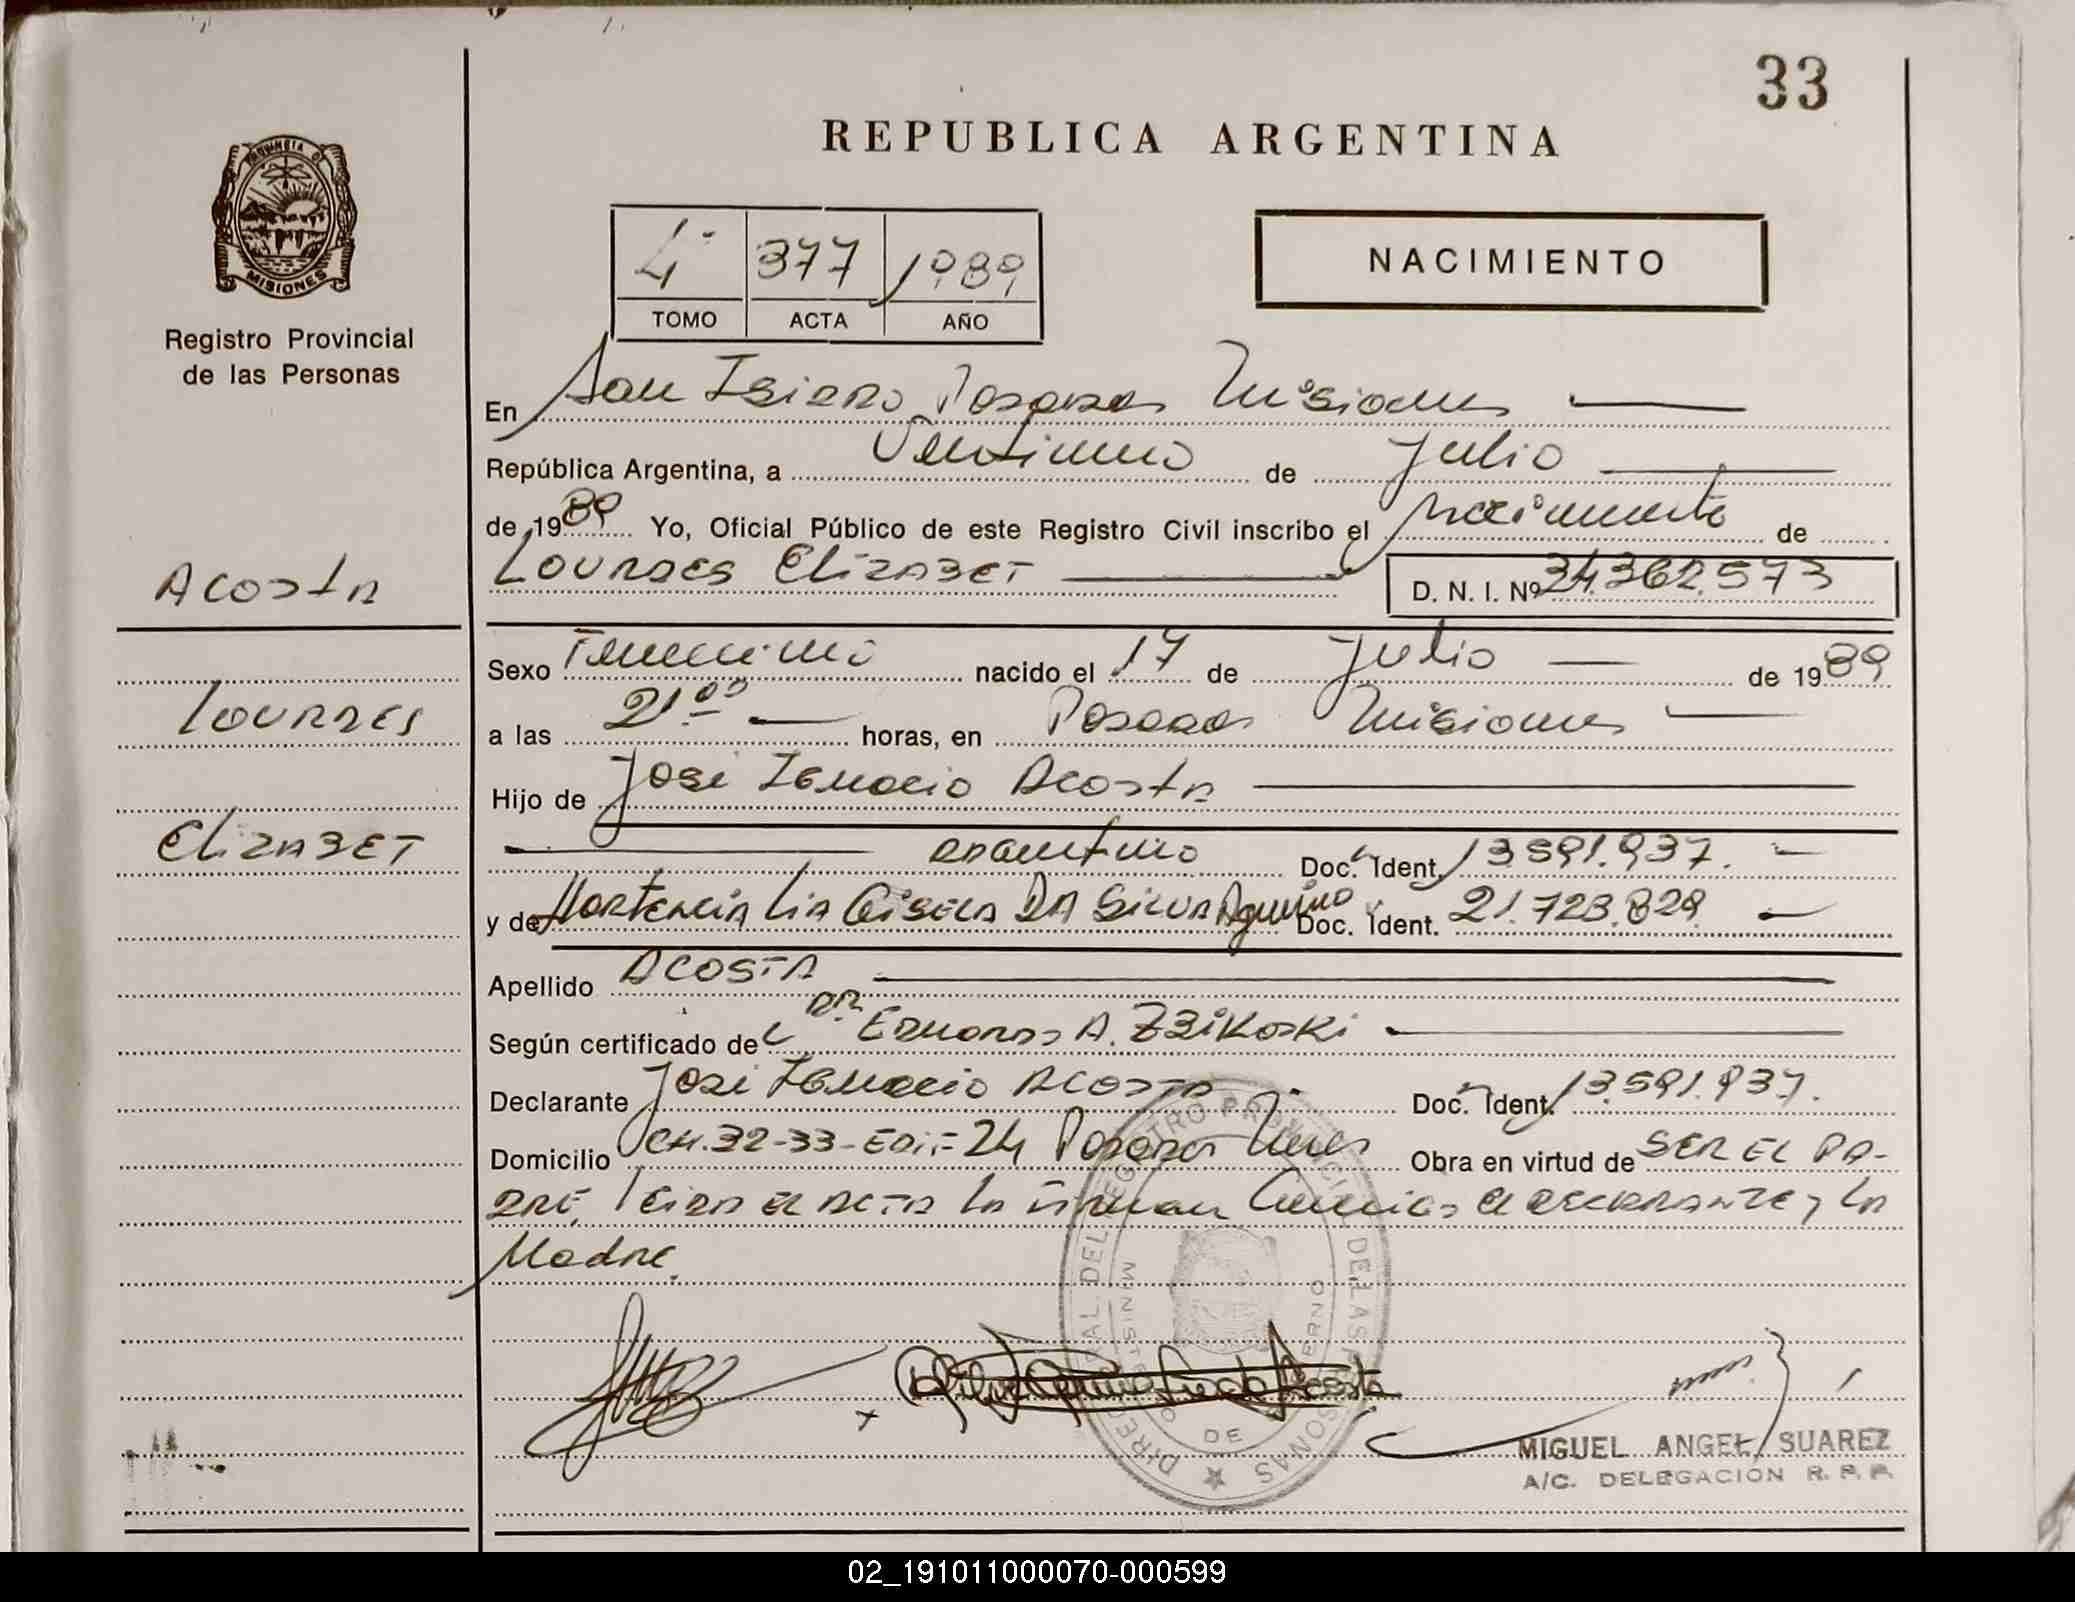 33
REPUBLICA ARGENTINA
PROVINCIA DE MISIONES
Registro Provincial
de las Personas
4º 377 1989
TOMO ACTA AÑO
NACIMIENTO
En San Isidro Posadas Misiones
República Argentina, a Veintiuno de Julio
de 1989 Yo, Oficial Público de este Registro Civil inscribo el nacimiento de
Lourdes Elizabet D. N. I. Nº 34.362.573
Acosta
Lourdes
Elizabet
Sexo Femenino nacido el 17 de Julio de 1989
a las 21⁰⁰ horas, en Posadas Misiones
Hijo de José Ignacio Acosta
argentino Doc. Ident. 13.591.937.
y de Hortencia Lia Gisela Da Silva Aquino Doc. Ident. 21.723.829
Apellido Acosta
Según certificado del Dr. Eduardo A. Zbikoski
Declarante José Ignacio Acosta Doc. Ident. 13.591.937.
Domicilio CH. 32-33-Edif 24 Posadas Mnes Obra en virtud de ser el pa-
dre, leida el acta la firman conmigo el declarante y la
Madre.
DIRECCION GENERAL DEL REGISTRO PROVINCIAL DE LAS PERSONAS
MINISTERIO DE GOBIERNO
MIGUEL ANGEL SUAREZ
A/C. DELEGACION R. P. P.
02_191011000070-000599